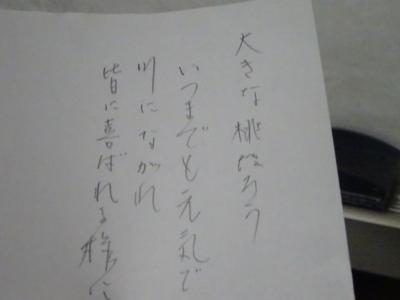 大きな桃ろう
いつまでも元気で
川にながれ
皆に喜ばれる